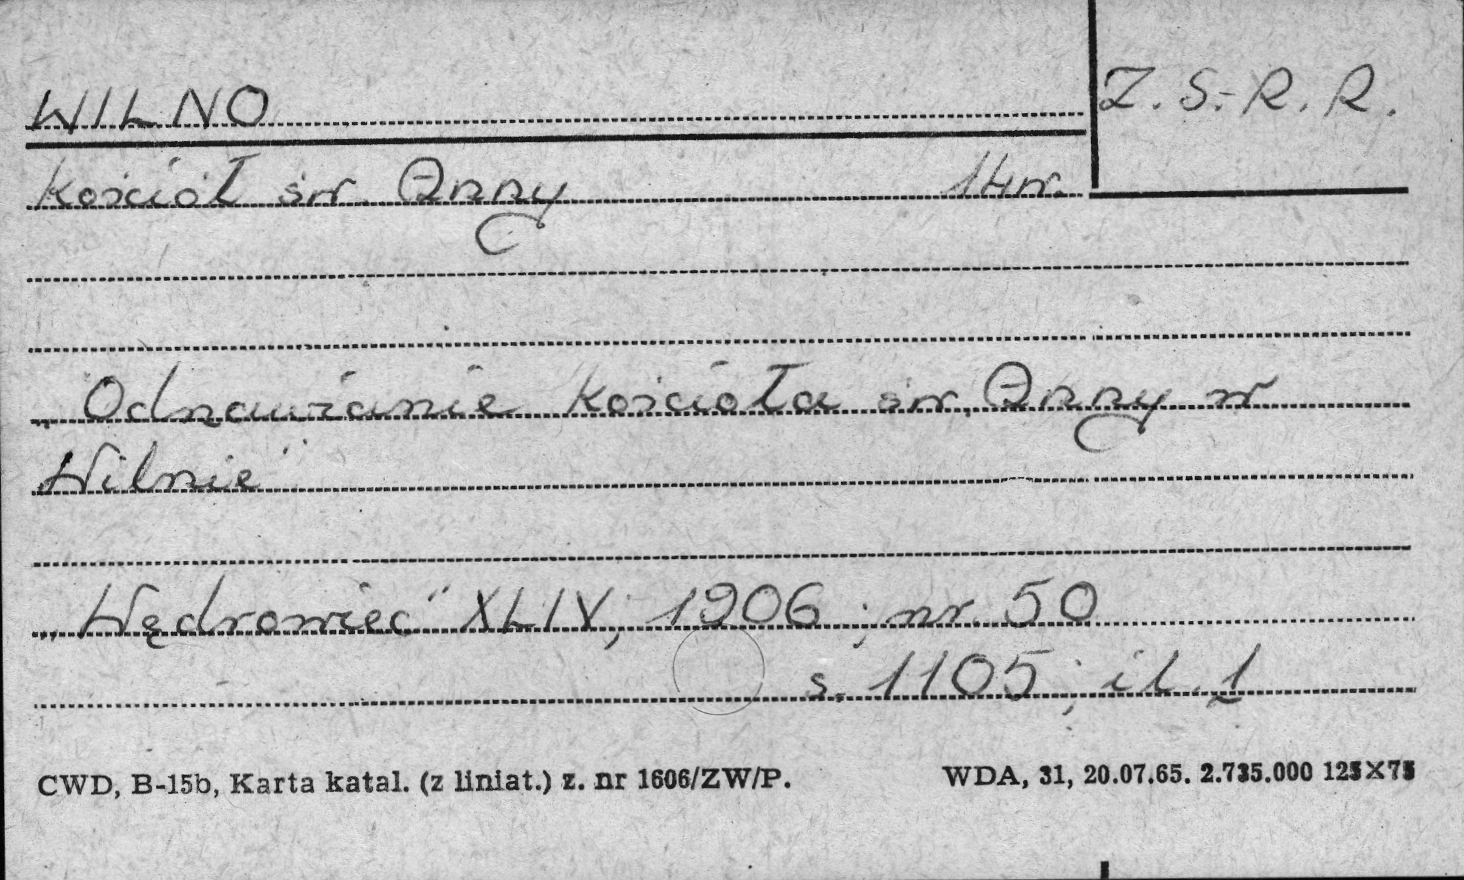 WILNO
Z.S.R.R.
Kościół św. Anny 14 w.
„Odnawianie kościoła św. Anny w
Wilnie"
„Wędrowiec" XLIV, 1906, nr. 50
s. 1105, il. 1
CWD, B-15b, Karta katal. (z liniat.) z. nr 1606/ZW/P.
WDA, 31, 20.07.65. 2.735.000 125×75